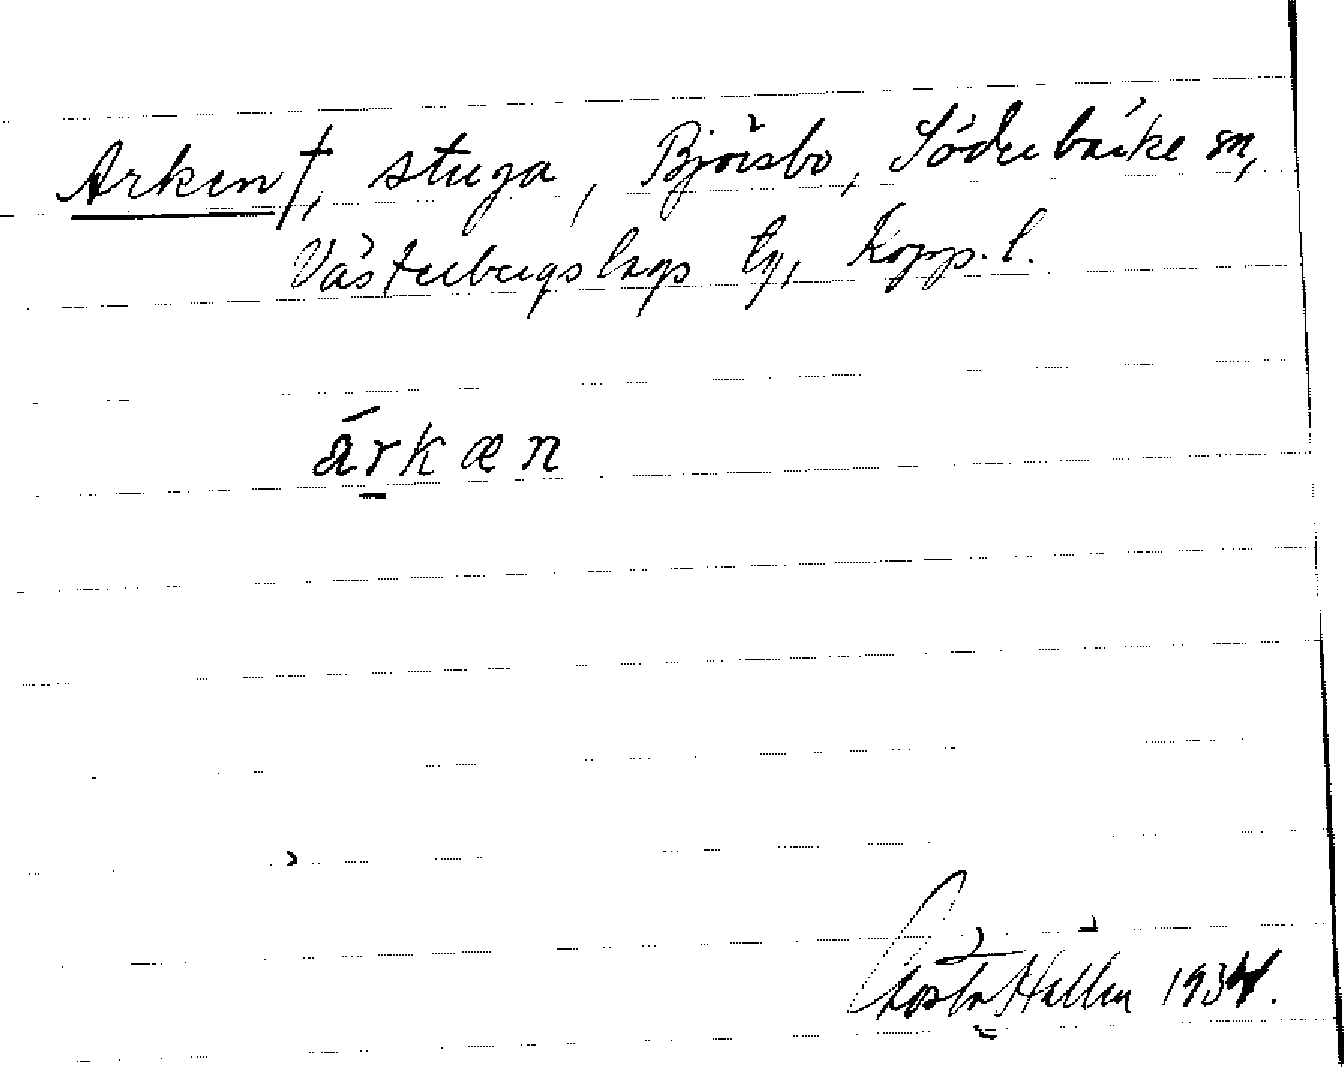 Arken†, stuga, Björsbo, Söderbärke sn,
Västerbergslags tg, Kopp. l.
árkæn
Gösta Hallén 1934.